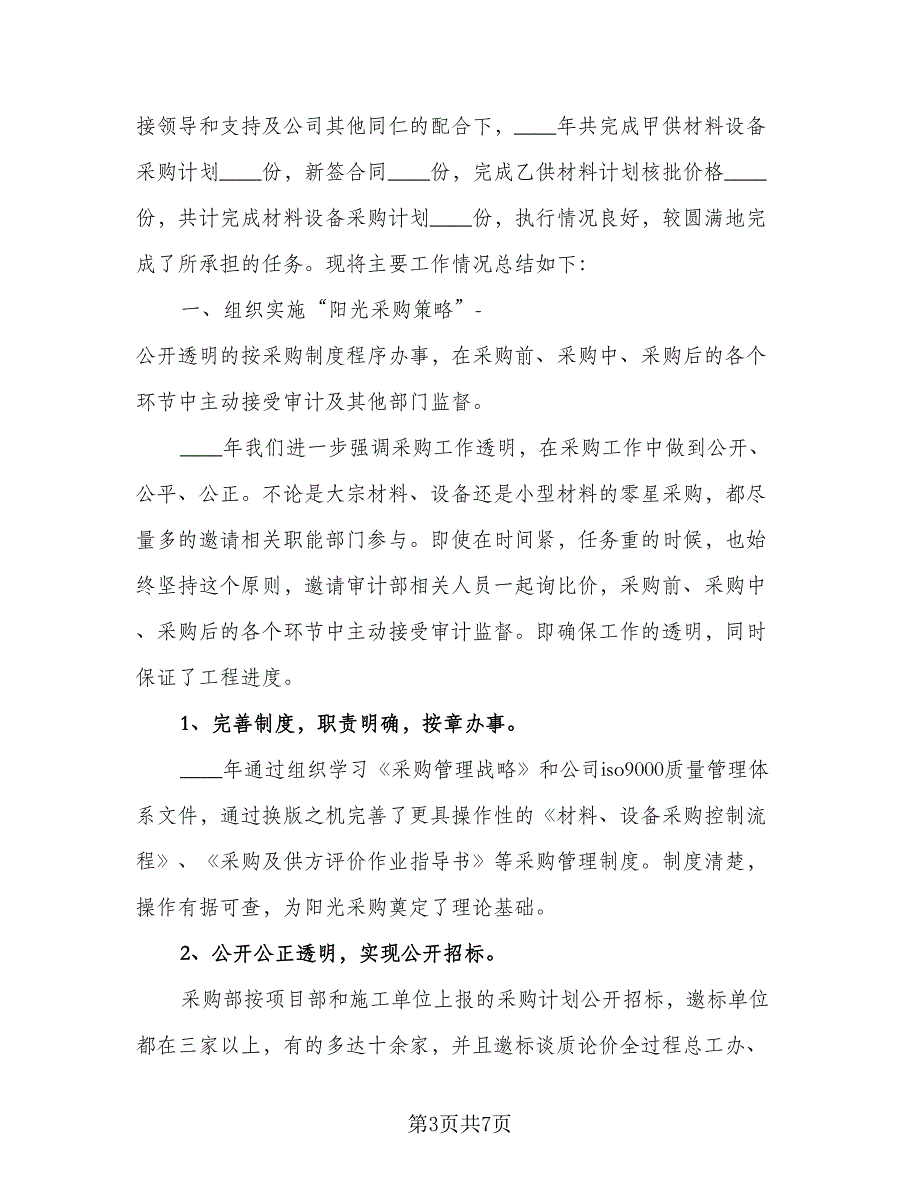 接领导和支持及公司其他同仁的配合下，____年共完成甲供材料设备
采购计划____份，新签合同____份，完成乙供材料计划核批价格____
份，共计完成材料设备采购计划____份，执行情况良好，较圆满地完
成了所承担的任务。现将主要工作情况总结如下：
一、组织实施“阳光采购策略”-
公开透明的按采购制度程序办事，在采购前、采购中、采购后的各个
环节中主动接受审计及其他部门监督。
____年我们进一步强调采购工作透明，在采购工作中做到公开、
公平、公正。不论是大宗材料、设备还是小型材料的零星采购，都尽
量多的邀请相关职能部门参与。即使在时间紧，任务重的时候，也始
终坚持这个原则，邀请审计部相关人员一起询比价，采购前、采购中
、采购后的各个环节中主动接受审计监督。即确保工作的透明，同时
保证了工程进度。
1、完善制度，职责明确，按章办事。
____年通过组织学习《采购管理战略》和公司iso9000质量管理体
系文件，通过换版之机完善了更具操作性的《材料、设备采购控制流
程》、《采购及供方评价作业指导书》等采购管理制度。制度清楚，
操作有据可查，为阳光采购奠定了理论基础。
2、公开公正透明，实现公开招标。
采购部按项目部和施工单位上报的采购计划公开招标，邀标单位
都在三家以上，有的多达十余家，并且邀标谈质论价全过程总工办、
第3页共7页